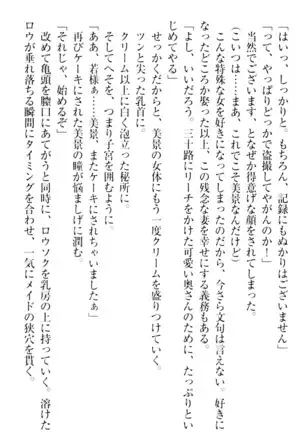 「はい、しっかりと。もちろん、記録にもぬかりはございません」
「って、やっぱりどっかで盗撮してやがんのか！」
当然でございます、となぜか得意げな顔をされてしまった。
（こいつは……まあ、これでこそ美景なんだけど）
こんな特殊な女を好きになってしまったのだから、今さら文句は言えない。好きに
なったどころか娶った以上、この残念な妻を幸せにする義務もある。
「よし、いいだろう。三十路にリーチをかけた可愛い奥さんのために、たっぷりとい
じめてやる」
せっかくだからと、美景の女体にもう一度クリームを盛りつけていく。
ツンと尖った乳首に。
クリーム以上に白く泡立った秘所に。
そしてへそを、つまり子宮を囲むように。
「ああ、若様ぁ……美景、またケーキにされちゃいましたぁ」
再びケーキにされた美景の瞳が悩ましげに潤む。
「それじゃ、始めるぞ」
改めて亀頭を膣口にあてがうと同時に、ロウソクを乳房の上に持っていく。溶けた
ロウが垂れ落ちる瞬間にタイミングを合わせ、一気にメイドの狭穴を貫く。